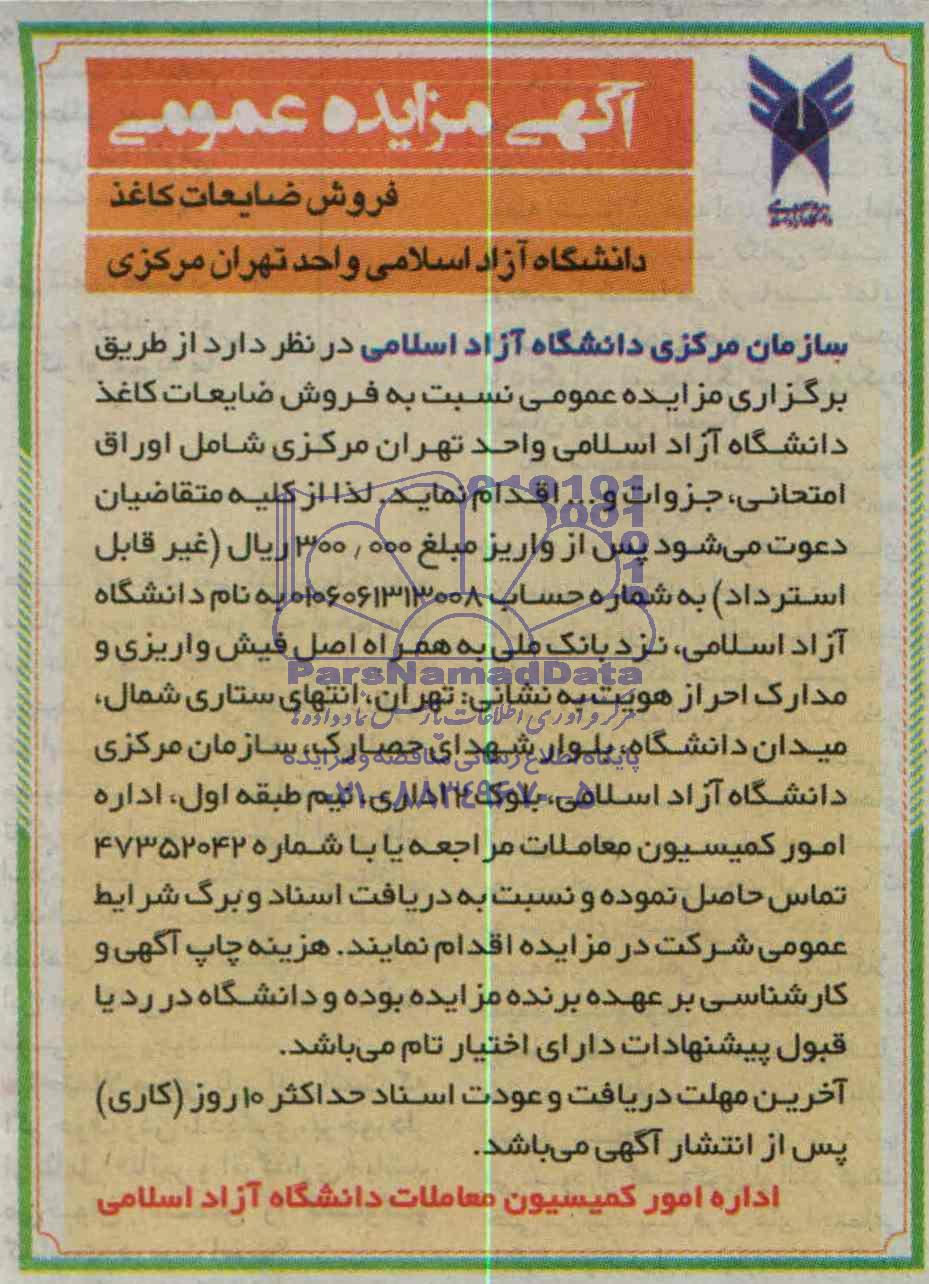 آگهی مزایده عمومی
فروش ضایعات کاغذ
دانشگاه آزاد اسلامی واحد تهران مرکزی
سازمان مرکزی دانشگاه آزاد اسلامی در نظر دارد از طریق
برگزاری مزایده عمومی نسبت به فروش ضایعات کاغذ
دانشگاه آزاد اسلامی واحد تهران مرکزی شامل اوراق
امتحانی، جزوات و... اقدام نماید. لذا از کلیه متقاضیان
دعوت می‌شود پس از واریز مبلغ ۳۰۰٫۰۰۰ ریال (غیر قابل
استرداد) به شماره حساب ۰۱۰۶۰۶۱۳۱۳۰۰۸ به نام دانشگاه
آزاد اسلامی، نزد بانک ملی به همراه اصل فیش واریزی و
مدارک احراز هویت به نشانی: تهران، انتهای ستاری شمال،
میدان دانشگاه، بلوار شهدای حصارک، سازمان مرکزی
دانشگاه آزاد اسلامی، بلوک ۲ اداری، نیم طبقه اول، اداره
امور کمیسیون معاملات مراجعه یا با شماره ۴۷۳۵۲۰۴۲
تماس حاصل نموده و نسبت به دریافت اسناد و برگ شرایط
عمومی شرکت در مزایده اقدام نمایند. هزینه چاپ آگهی و
کارشناسی بر عهده برنده مزایده بوده و دانشگاه در رد یا
قبول پیشنهادات دارای اختیار تام می‌باشد.
آخرین مهلت دریافت و عودت اسناد حداکثر ۱۰ روز (کاری)
پس از انتشار آگهی می‌باشد.
اداره امور کمیسیون معاملات دانشگاه آزاد اسلامی
ParsNamadData
مرکز فرآوری اطلاعات پارس نماد داده‌ها
پایگاه اطلاع رسانی مناقصه و مزایده
۰۲۱-۸۸۳۴۹۶۷۰-۵